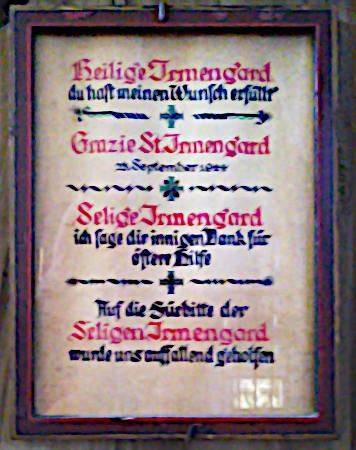 Heilige Irmengard
du hast meinen Wunsch erfüllt
Grazie St. Irmengard
September
Selige Irmengard
ich sage dir innigen Dank für
öftere Hilfe
Auf die Fürbitte der
Seligen Irmengard
wurde uns auffallend geholfen